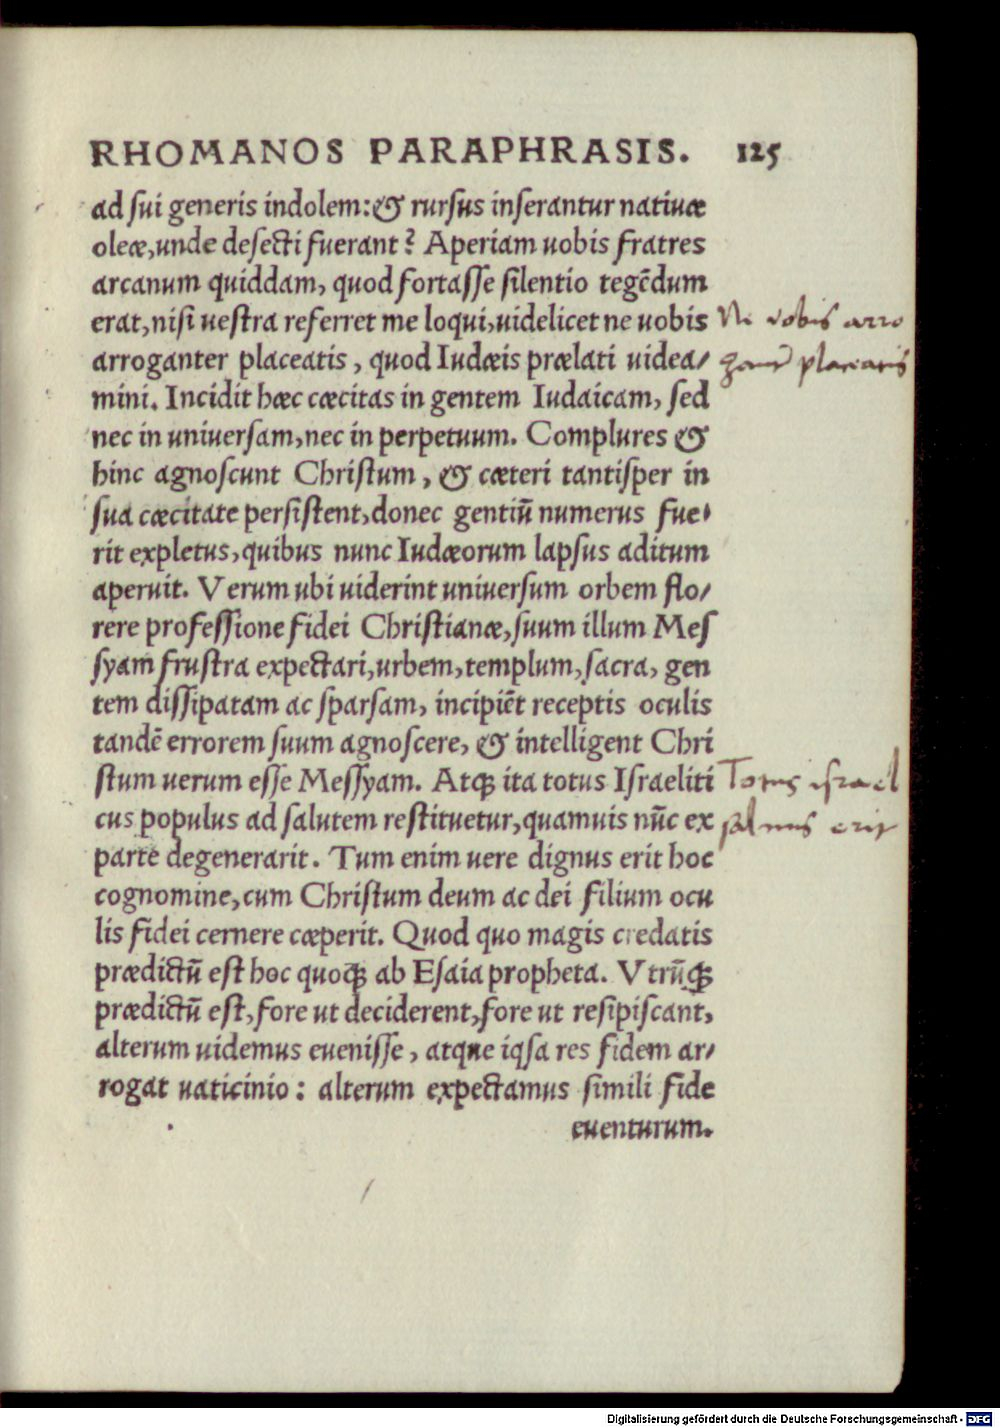 RHOMANOS PARAPHRASIS. 125
ad sui generis indolem: & rursus inserantur natiuæ
oleæ, unde desecti fuerant? Aperiam uobis fratres
arcanum quiddam, quod fortasse silentio tegēdum
erat, nisi uestra referret me loqui, uidelicet ne uobis
Ne vobis arro
arroganter placeatis, quod Iudæis prælati uidea/
ganter placeatis
mini. Incidit hæc cæcitas in gentem Iudaicam, sed
nec in uniuersam, nec in perpetuum. Complures &
hinc agnoscunt Christum, & cæteri tantisper in
sua cæcitate persistent, donec gentiū numerus fue/
rit expletus, quibus nunc Iudæorum lapsus aditum
aperuit. Verum ubi uiderint uniuersum orbem flo/
rere professione fidei Christianæ, suum illum Mes
syam frustra expectari, urbem, templum, sacra, gen
tem dissipatam ac sparsam, incipiēt receptis oculis
tandē errorem suum agnoscere, & intelligent Chri
stum uerum esse Messyam. Atq; ita totus Israeliti
Totus israel
cus populus ad salutem restituetur, quamuis nūc ex
saluus erit
parte degenerarit. Tum enim uere dignus erit hoc
cognomine, cum Christum deum ac dei filium ocu
lis fidei cernere cæperit. Quod quo magis credatis
prædictū est hoc quoq; ab Esaia propheta. Vtrūq;
prædictū est, fore ut deciderent, fore ut resipiscant,
alterum uidemus euenisse, atque iqsa res fidem ar/
rogat uaticinio: alterum expectamus simili fide
euenturum.
Digitalisierung gefördert durch die Deutsche Forschungsgemeinschaft - DFG